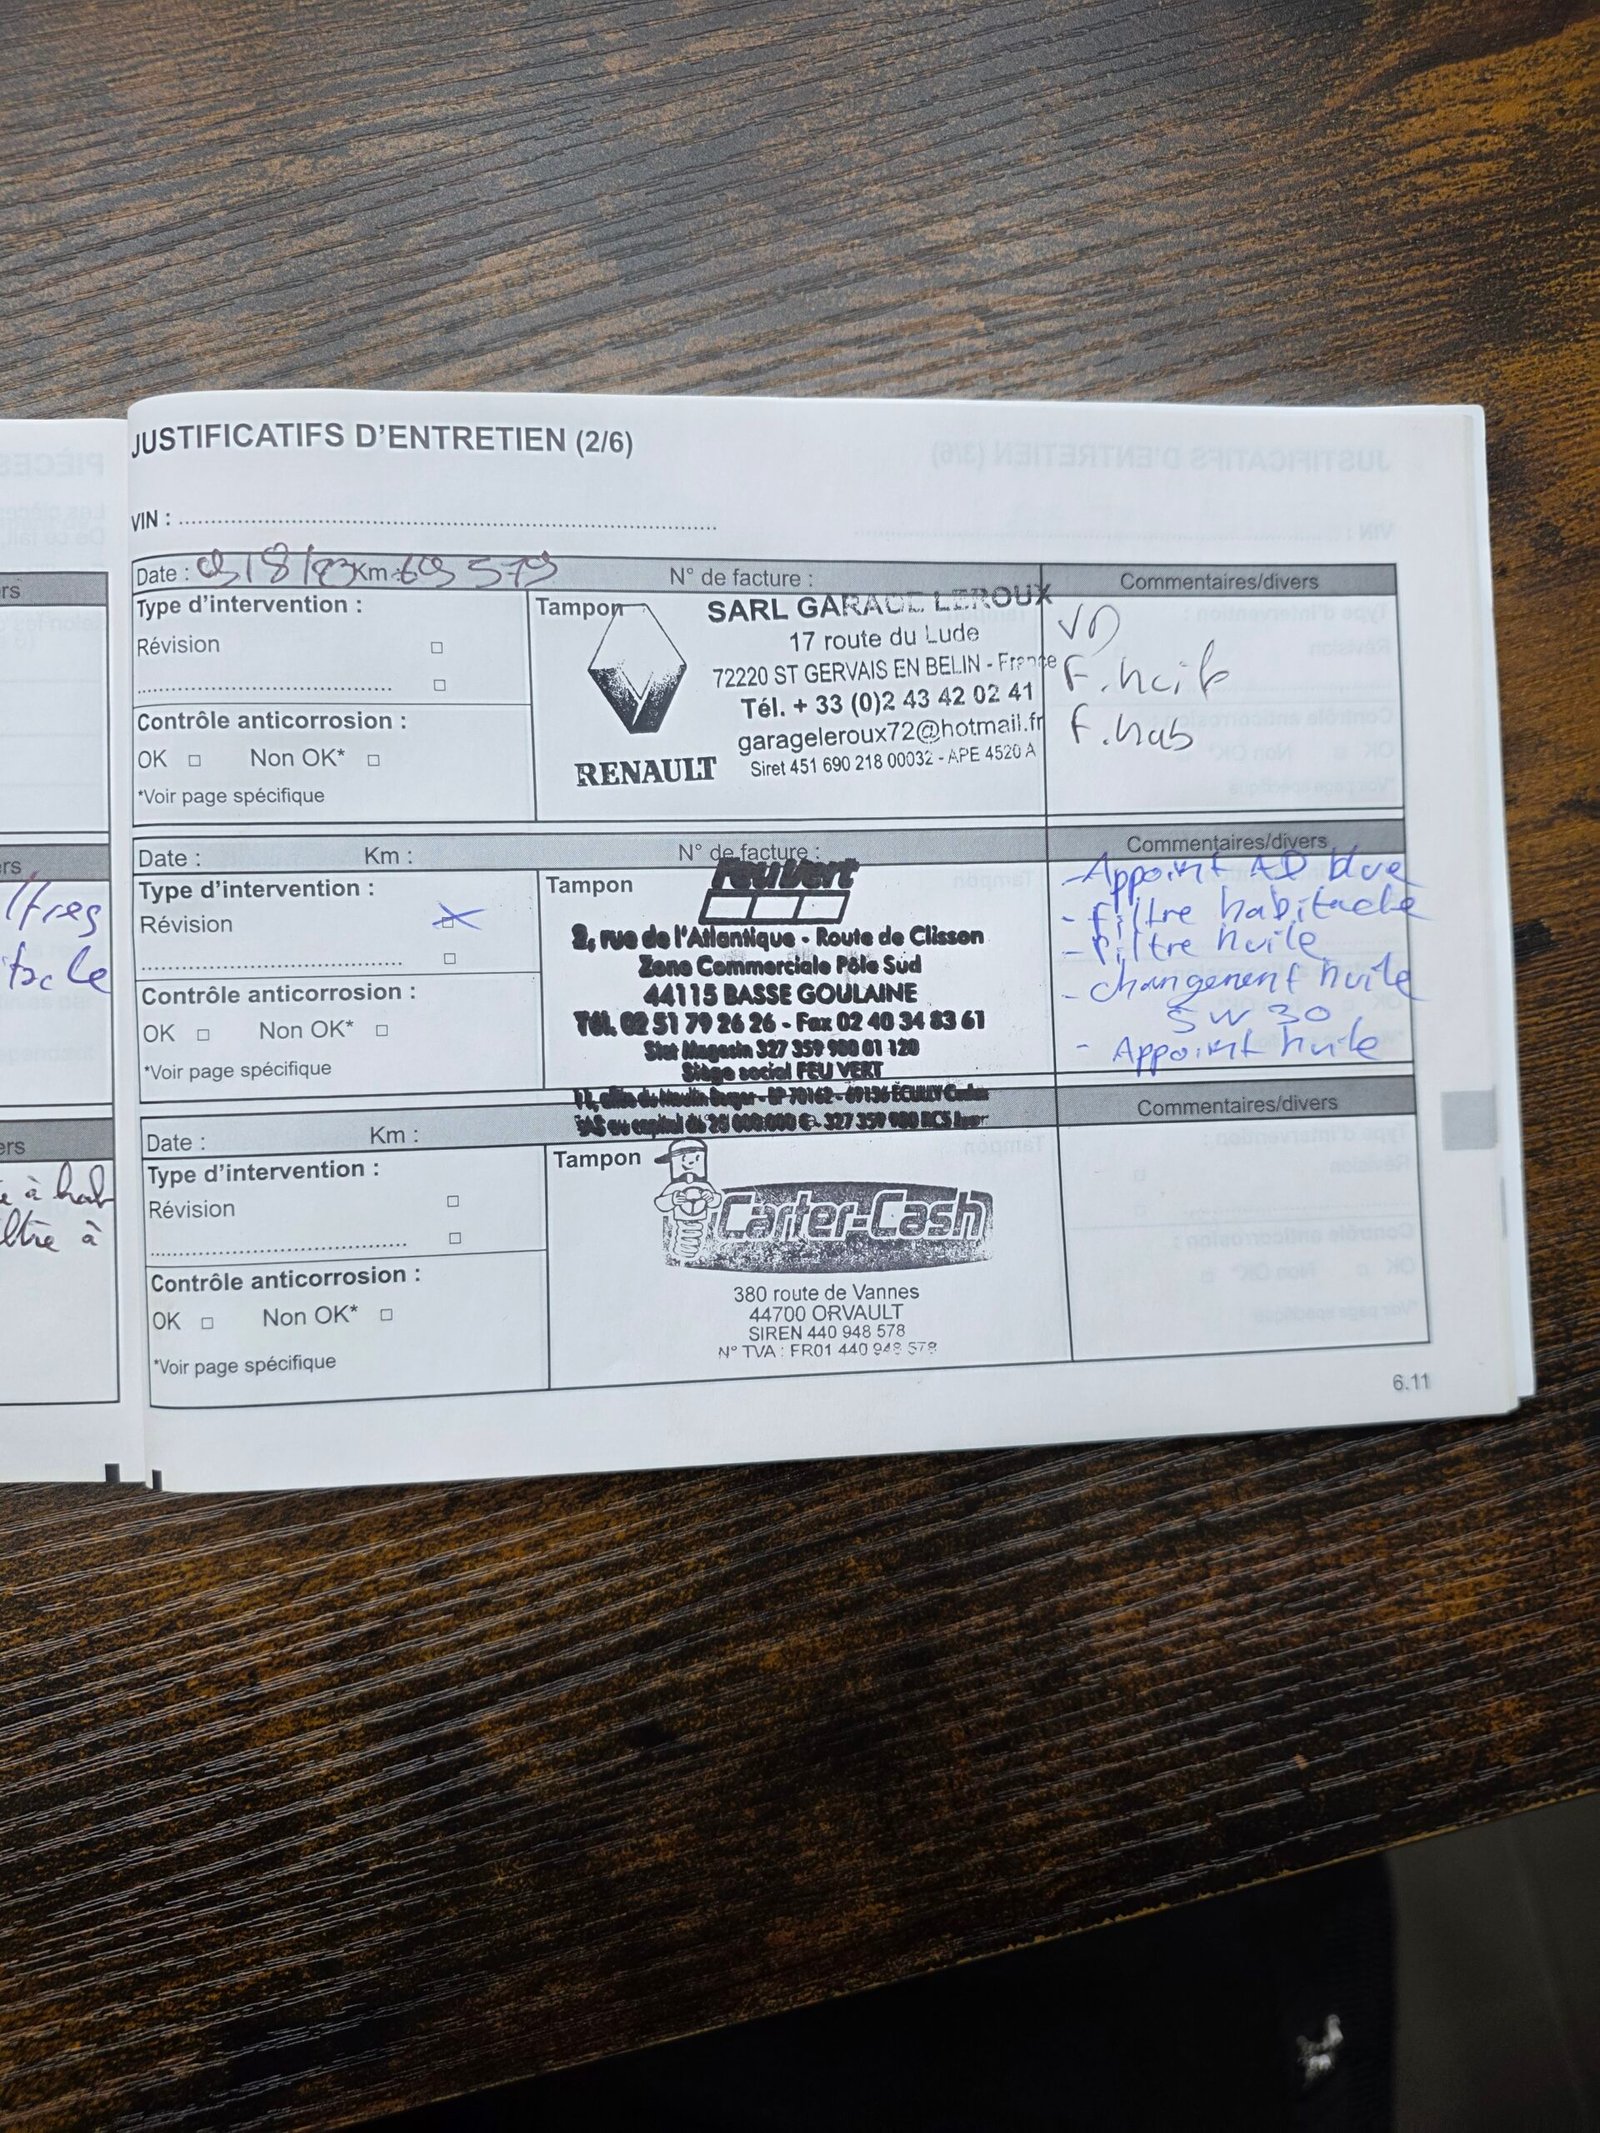 JUSTIFICATIFS D'ENTRETIEN (2/6)
VIN :
Date : Km : N° de facture : Commentaires/divers
Type d'intervention :
Révision
Contrôle anticorrosion :
OK Non OK*
*Voir page spécifique
Tampon
RENAULT
SARL GARAGE LEROUX
17 route du Lude
72220 ST GERVAIS EN BELIN - France
Tél. + 33 (0)2 43 42 02 41
garageleroux72@hotmail.fr
Siret 451 690 218 00032 - APE 4520 A
F. hab
Date : Km : N° de facture : Commentaires/divers
Type d'intervention :
Révision
Contrôle anticorrosion :
OK Non OK*
*Voir page spécifique
Tampon
feu vert
2, rue de l'Atlantique - Route de Clisson
Zone Commerciale Pôle Sud
44115 BASSE GOULAINE
Tél. 02 51 79 26 26 - Fax 02 40 34 83 61
327 359 980 01 120
Siège social FEU VERT
- Appoint AD blue
- filtre habitacle
- filtre huile
- changement huile
5W30
- Appoint huile
Date : Km : Commentaires/divers
Type d'intervention :
Révision
Contrôle anticorrosion :
OK Non OK*
*Voir page spécifique
Tampon
Carter-Cash
380 route de Vannes
44700 ORVAULT
SIREN 440 948 578
N° TVA : FR01 440 948 578
6.11